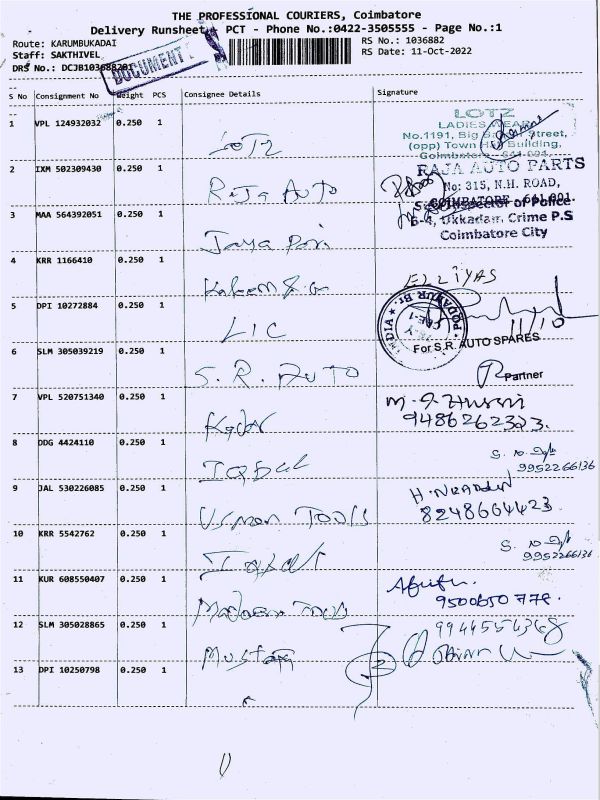 THE PROFESSIONAL COURIERS, Coimbatore
Delivery Runsheet PCT - Phone No.:0422-3505555 - Page No.:1
Route: KARUMBUKADAI
RS No.: 1036882
Staff: SAKTHIVEL
RS Date: 11-Oct-2022
DRS No.: DCJB103688201
DOCUMENT
S No Consignment No Weight PCS Consignee Details Signature
1 VPL 124932032 0.250 1 LOTZ
LOTZ
LADIES WEAR
No.1191, Big Street,
(opp) Town Hall Building,
Coimbatore - 641 001.
2 IXM 502309430 0.250 1 Raja Auto
RAJA AUTO PARTS
No: 315, N.H. ROAD,
COIMBATORE - 641 001.
3 MAA 564392051 0.250 1 Jaya
Sub Inspector of Police
Ukkadam, Crime P.S
Coimbatore City
4 KRR 1166410 0.250 1 Kaleem
ELLIYAS
5 DPI 10272884 0.250 1 LIC
PODANUR Br.
INDIA
CBE-1
11/10
6 SLM 305039219 0.250 1 S.R. AUTO
For S.R. AUTO SPARES
Partner
7 VPL 520751340 0.250 1 Kadar
9486262323.
8 DDG 4424110 0.250 1 IQBAL
9952266136
9 JAL 530226085 0.250 1 Usman Tools
8248664423
10 KRR 5542762 0.250 1
9952266136
11 KUR 608550407 0.250 1
9500650778.
12 SLM 305028865 0.250 1 Mustafa
13 DPI 10250798 0.250 1